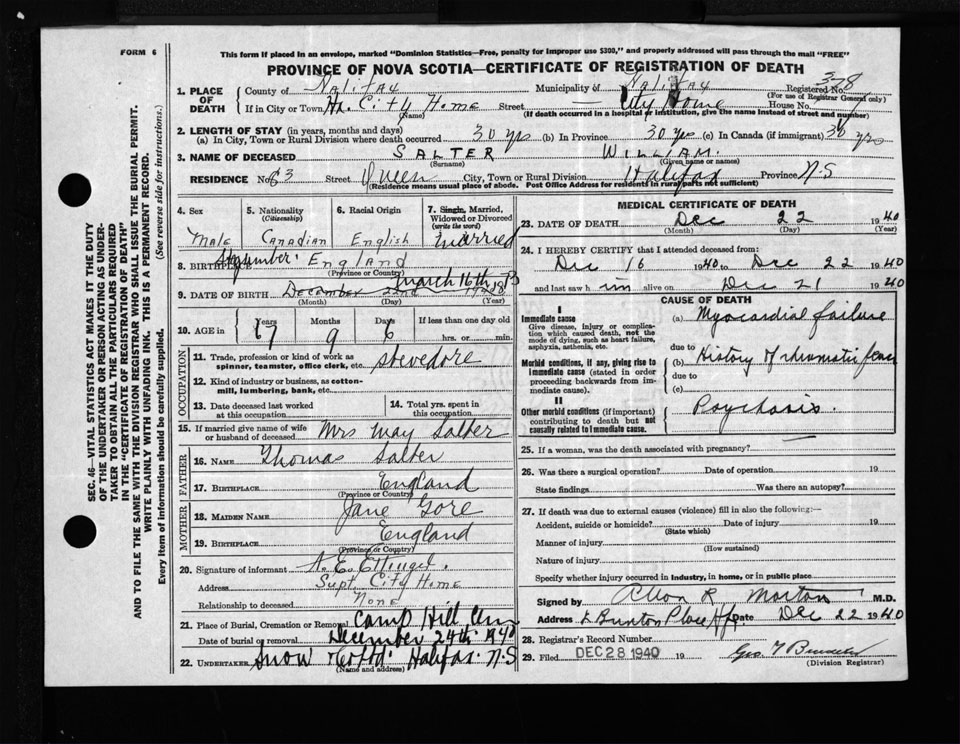 FORM 6
This form if placed in an envelope, marked "Dominion Statistics—Free, penalty for improper use $300," and properly addressed will pass through the mail "FREE"
PROVINCE OF NOVA SCOTIA—CERTIFICATE OF REGISTRATION OF DEATH
1. PLACE OF DEATH County of Halifax Municipality of Halifax Registered No. 378
(For use of Registrar General only)
If in City or Town Hx. City Home Street — City Home House No.
(Name) (If death occurred in a hospital or institution, give the name instead of street and number)
2. LENGTH OF STAY (in years, months and days)
(a) In City, Town or Rural Division where death occurred 30 yrs (b) In Province 30 yrs (c) In Canada (if immigrant) 30 yrs
3. NAME OF DECEASED SALTER WILLIAM.
(Surname) (Given name or names)
RESIDENCE No. 63 Street Queen City, Town or Rural Division Halifax Province N-S
(Residence means usual place of abode. Post Office Address for residents in rural parts not sufficient)
4. Sex Male
5. Nationality (Citizenship) Canadian
6. Racial Origin English
7. Single, Married, Widowed or Divorced (write the word) married
8. BIRTHPLACE England
(Province or Country)
March 16th
9. DATE OF BIRTH December 22nd
(Month) (Day) (Year)
10. AGE in Years Months Days If less than one day old
67 9 6 hrs. or min.
OCCUPATION
11. Trade, profession or kind of work as spinner, teamster, office clerk, etc. stevedore
12. Kind of industry or business, as cotton-mill, lumbering, bank, etc.
13. Date deceased last worked at this occupation
14. Total yrs. spent in this occupation
15. If married give name of wife or husband of deceased Mrs May Salter
FATHER
16. NAME Thomas Salter
17. BIRTHPLACE England
(Province or Country)
MOTHER
18. MAIDEN NAME Jane Gore
19. BIRTHPLACE England
(Province or Country)
20. Signature of informant
Address Supt. City Home
Relationship to deceased None
21. Place of Burial, Cremation or Removal Camp Hill Cem
Date of burial or removal December 24th 1940
22. UNDERTAKER Snow & Co Ltd. Halifax N-S
(Name and address)
MEDICAL CERTIFICATE OF DEATH
23. DATE OF DEATH Dec 22 1940
(Month) (Day) (Year)
24. I HEREBY CERTIFY that I attended deceased from:
Dec 16 1940 to Dec 22 1940
and last saw him alive on Dec 21 1940
CAUSE OF DEATH
I
Immediate cause
Give disease, injury or complication which caused death, not the mode of dying, such as heart failure, asphyxia, asthenia, etc.
(a) Myocardial failure
due to
Morbid conditions, if any, giving rise to immediate cause (stated in order proceeding backwards from immediate cause).
(b) History of rheumatic fever
due to
(c)
II
Other morbid conditions (if important) contributing to death but not causally related to immediate cause.
Psychosis.
25. If a woman, was the death associated with pregnancy?
26. Was there a surgical operation? Date of operation 19
State findings Was there an autopsy?
27. If death was due to external causes (violence) fill in also the following:—
Accident, suicide or homicide? Date of injury 19
(State which)
Manner of injury
(How sustained)
Nature of injury
Specify whether injury occurred in industry, in home, or in public place
Signed by Allan R Morton M.D.
Address Place Hfx Date Dec 22 1940
28. Registrar's Record Number
29. Filed DEC 28 1940 19
(Division Registrar)
SEC. 46—VITAL STATISTICS ACT MAKES IT THE DUTY OF THE UNDERTAKER OR PERSON ACTING AS UNDERTAKER TO OBTAIN ALL THE PARTICULARS REQUIRED IN THE "CERTIFICATE OF REGISTRATION OF DEATH" AND TO FILE THE SAME WITH THE DIVISION REGISTRAR WHO SHALL ISSUE THE BURIAL PERMIT.
WRITE PLAINLY WITH UNFADING INK. THIS IS A PERMANENT RECORD.
Every item of information should be carefully supplied. (See reverse side for instructions.)